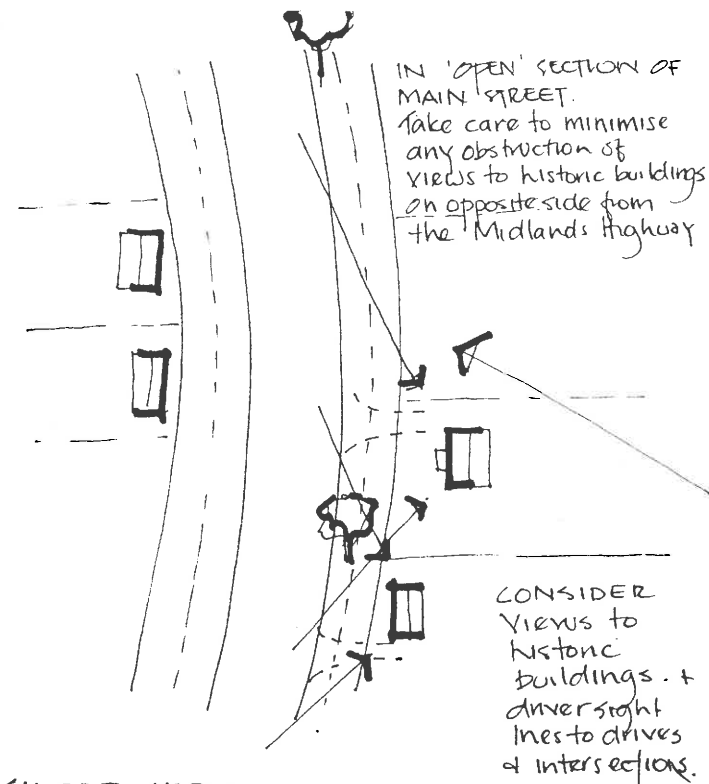 IN 'OPEN' SECTION OF
MAIN STREET.
Take care to minimise
any obstruction of
views to historic buildings
on opposite side from
the Midlands Highway
CONSIDER
views to
historic
buildings. +
driver sight
lines to drives
& intersections.